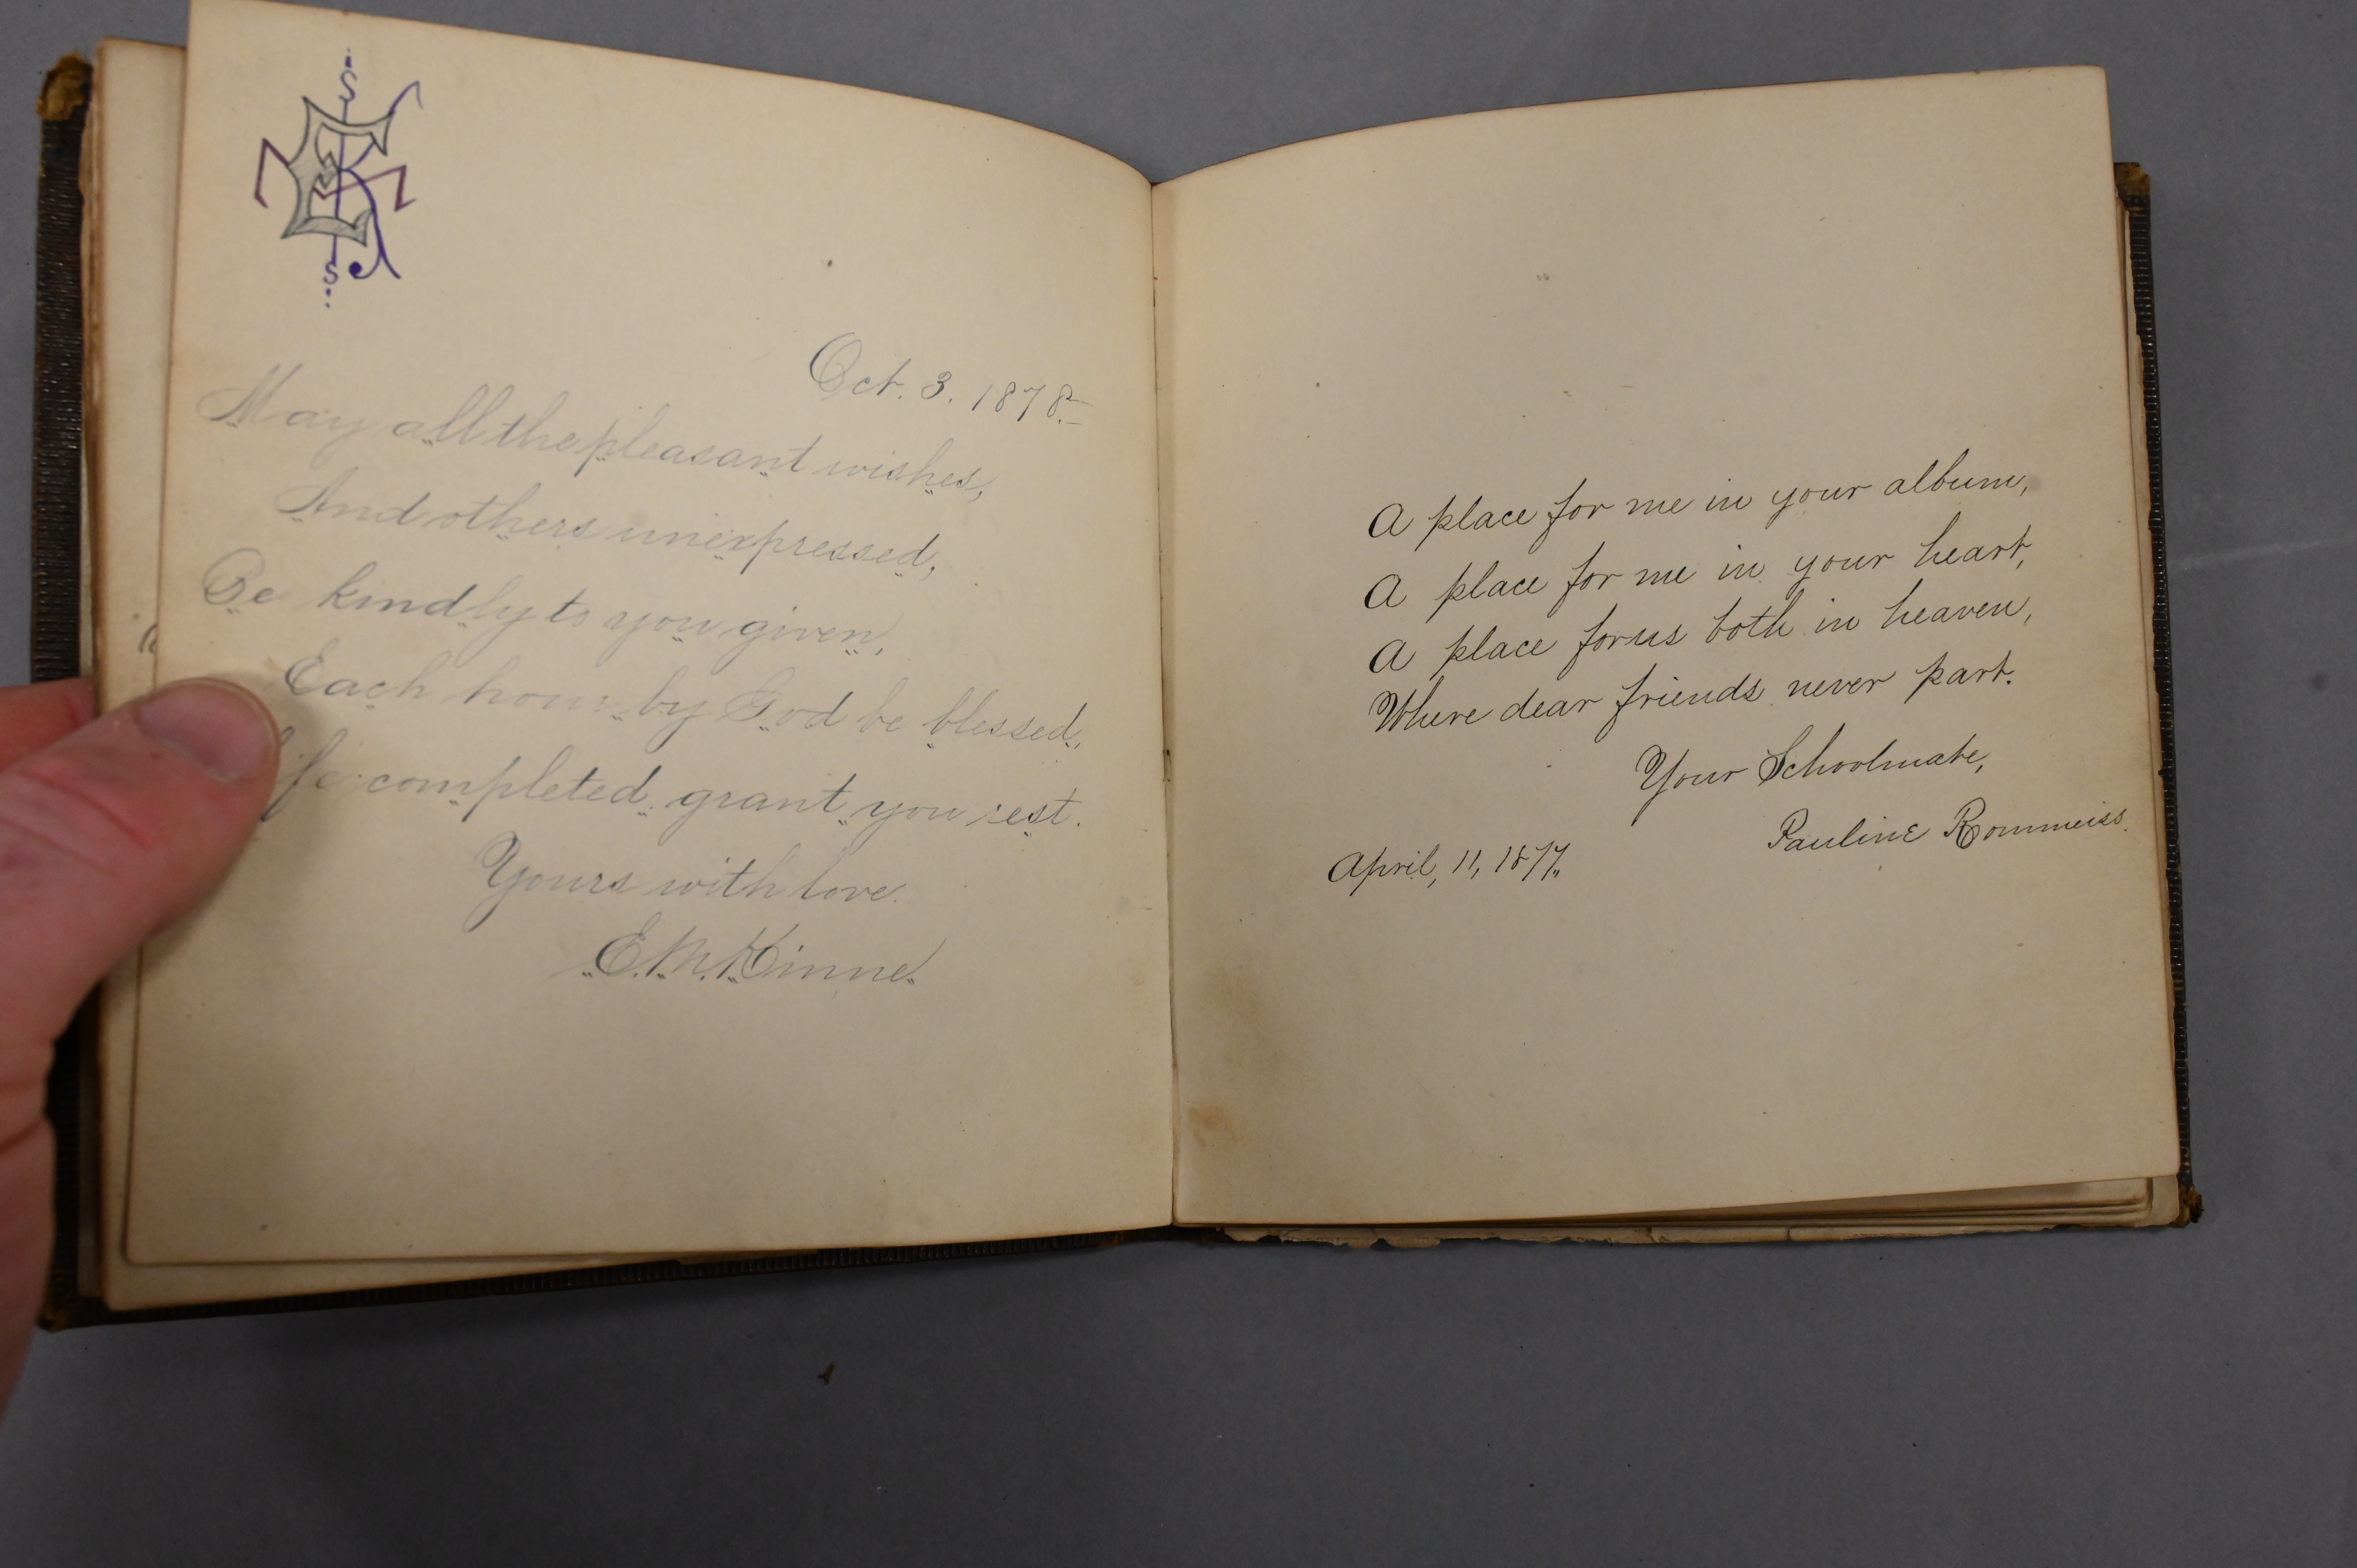 Oct. 3. 1878.
May all the pleasant wishes,
And others unexpressed,
Be kindly to you given,
Each hour by God be blessed,
completed, grant you rest.
Yours with love.
E. M. Kinne.
A place for me in your album,
A place for me in your heart,
A place for us both in heaven,
Where dear friends never part.
Your Schoolmate,
Pauline Rommeiss.
April, 11, 1877.